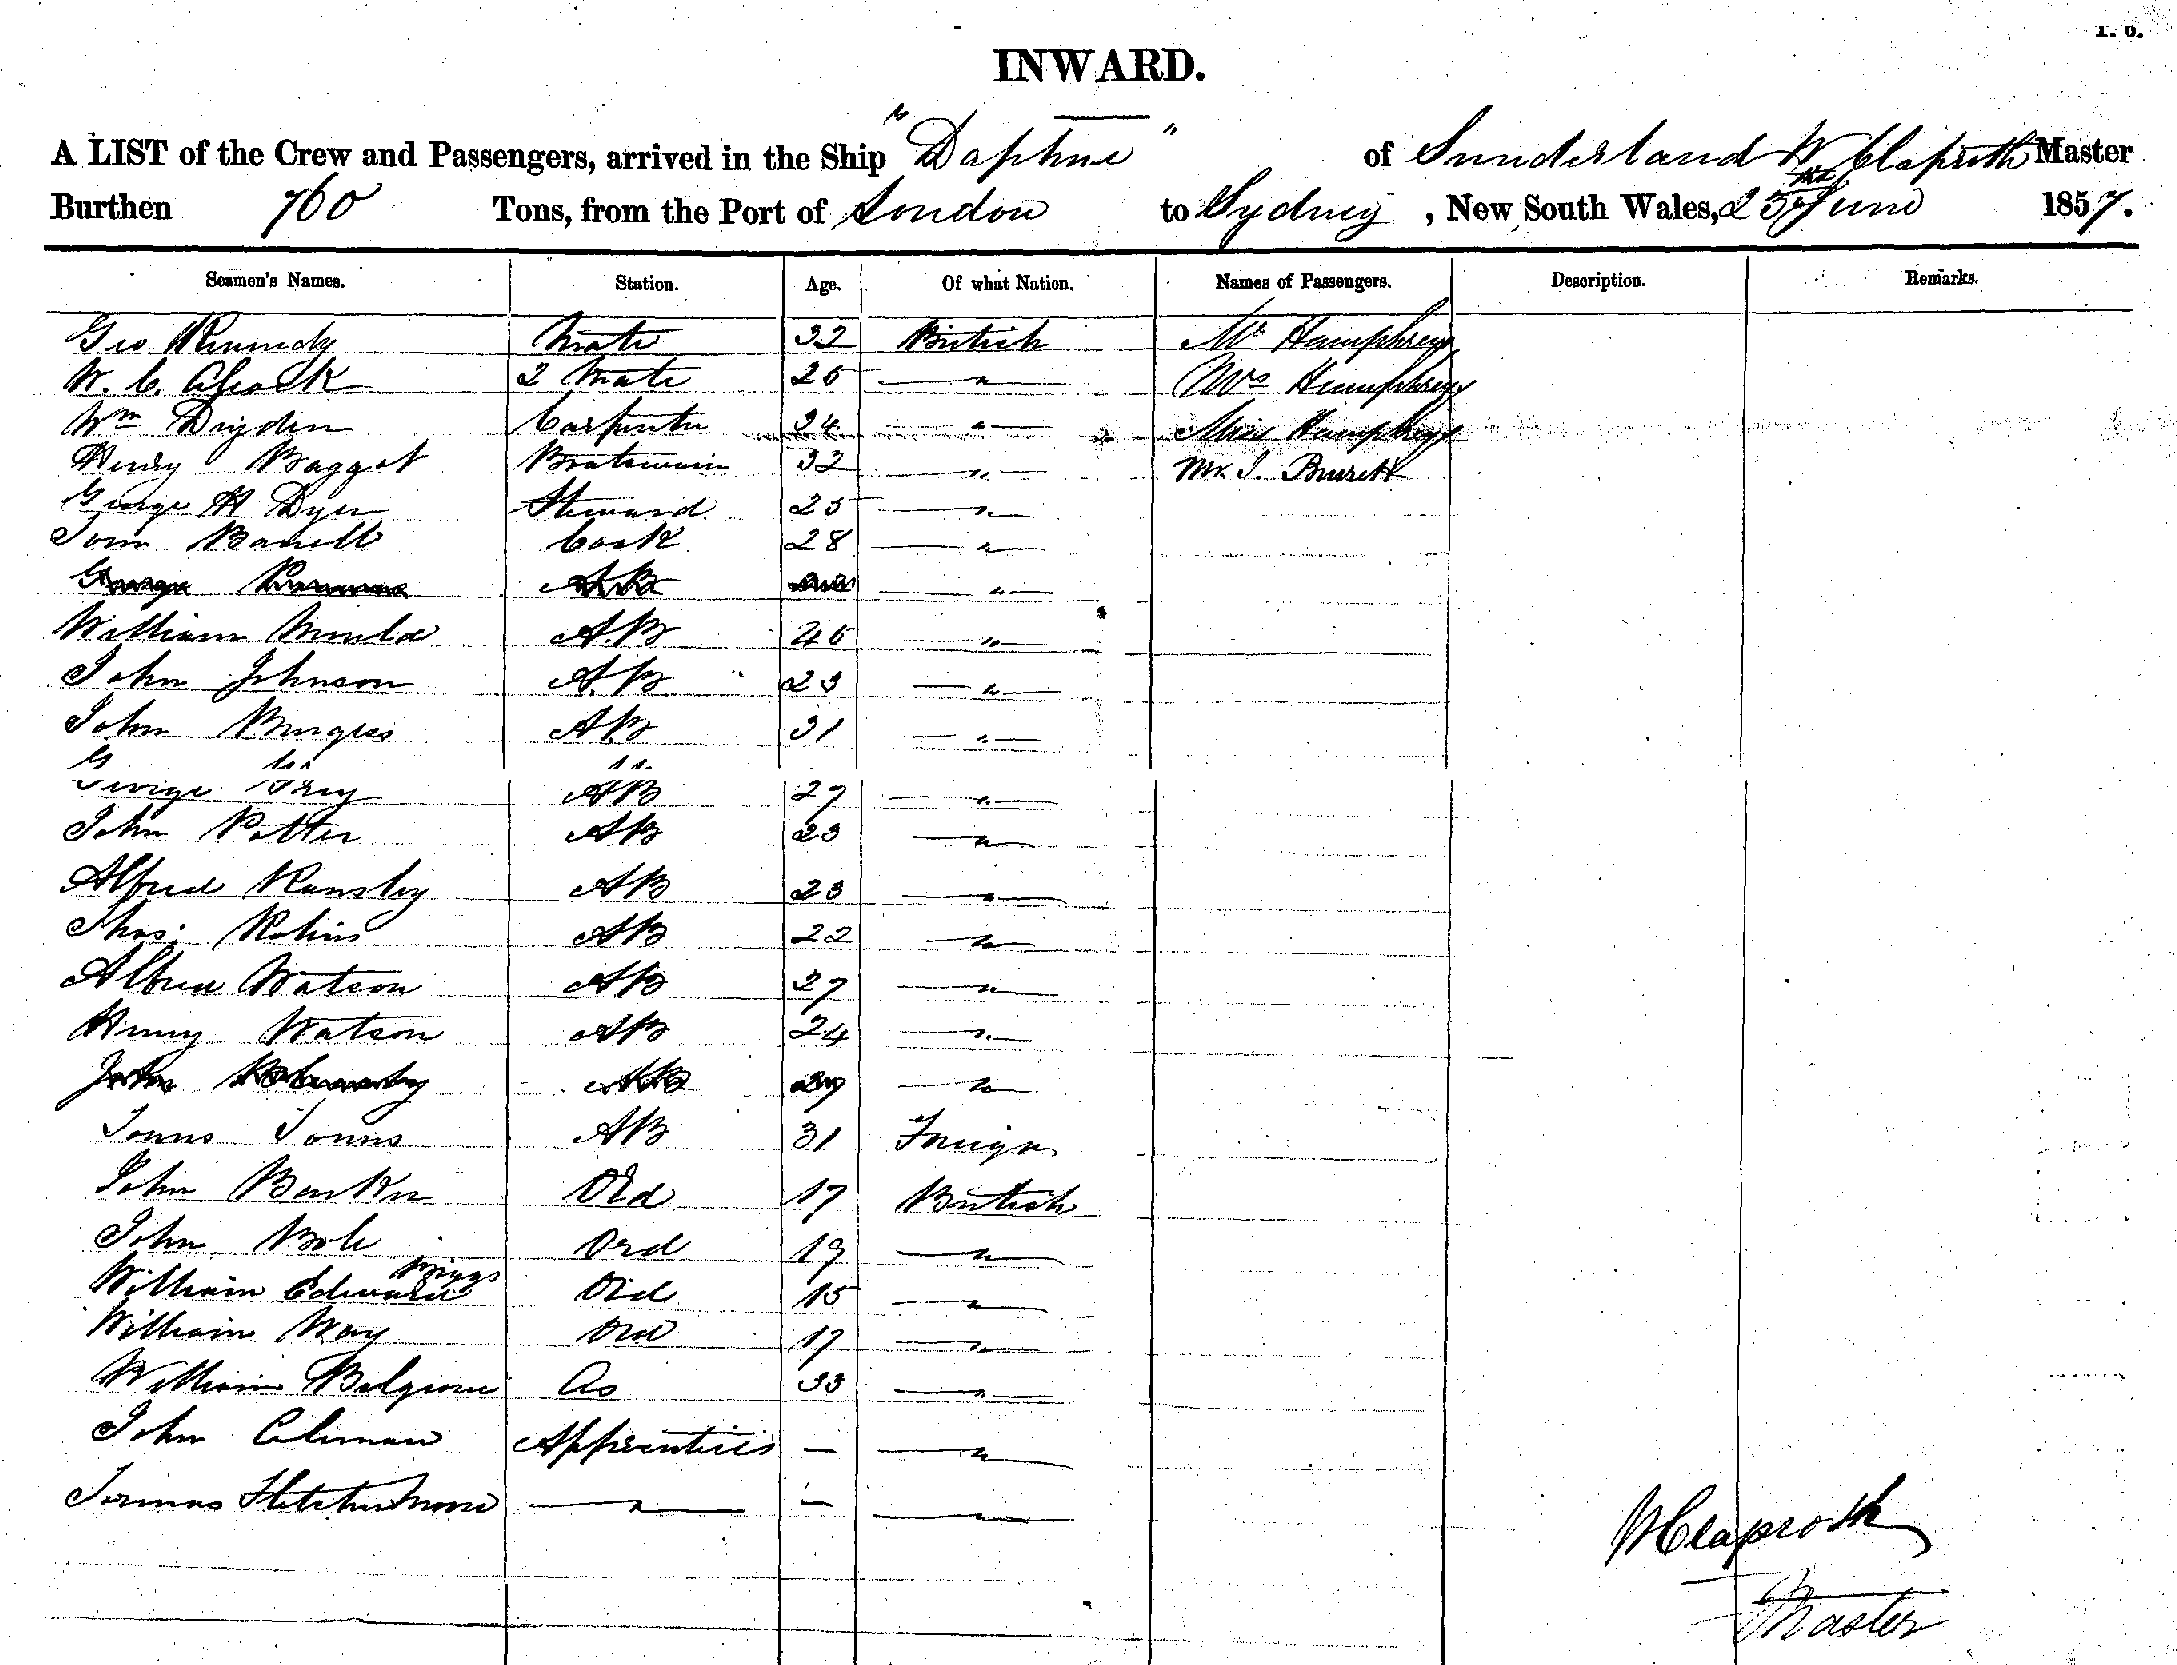 INWARD.
A LIST of the Crew and Passengers, arrived in the Ship "Daphne" of Sunderland W Claproth Master
Burthen 760 Tons, from the Port of London to Sydney, New South Wales, 25th June 1857.
Seamen's Names. Station. Age. Of what Nation. Names of Passengers. Description. Remarks.
Geo Kennedy Mate 32 British Mr Humphreys
W. C. Alcock 2 Mate 26 " Mrs Humphreys
Wm Dryden Carpenter 24 " Miss Humphreys
Henry Baggot Boatswain 32 " Mr. J.
George H Dyer Steward 25 "
Cook 28 "
George AB "
William AB 46 "
John Johnson AB 23 "
John Burgess AB 31 "
George Grey AB 27 "
John Potter AB 23 "
Alfred Ransley AB 23 "
Thos. Robins AB 22 "
Alfred Watson AB 27 "
Henry Watson AB 24 "
John AB "
AB 31 Foreign
John Barker Ord 17 British
John Ord 19 "
William Edward Briggs Ord 15 "
William May Ord 17 "
William 33 "
John Coleman Apprentices — "
Fletcher Moore " — "
W Claproth
Master